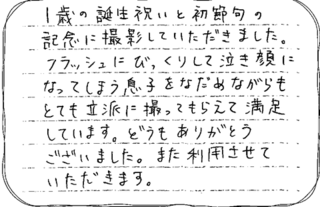 1歳の誕生祝いと初節句の
記念に撮影していただきました。
フラッシュにびっくりして泣き顔に
なってしまう息子をなだめながらも
とても立派に撮ってもらえて満足
しています。どうもありがとう
ございました。また利用させて
いただきます。